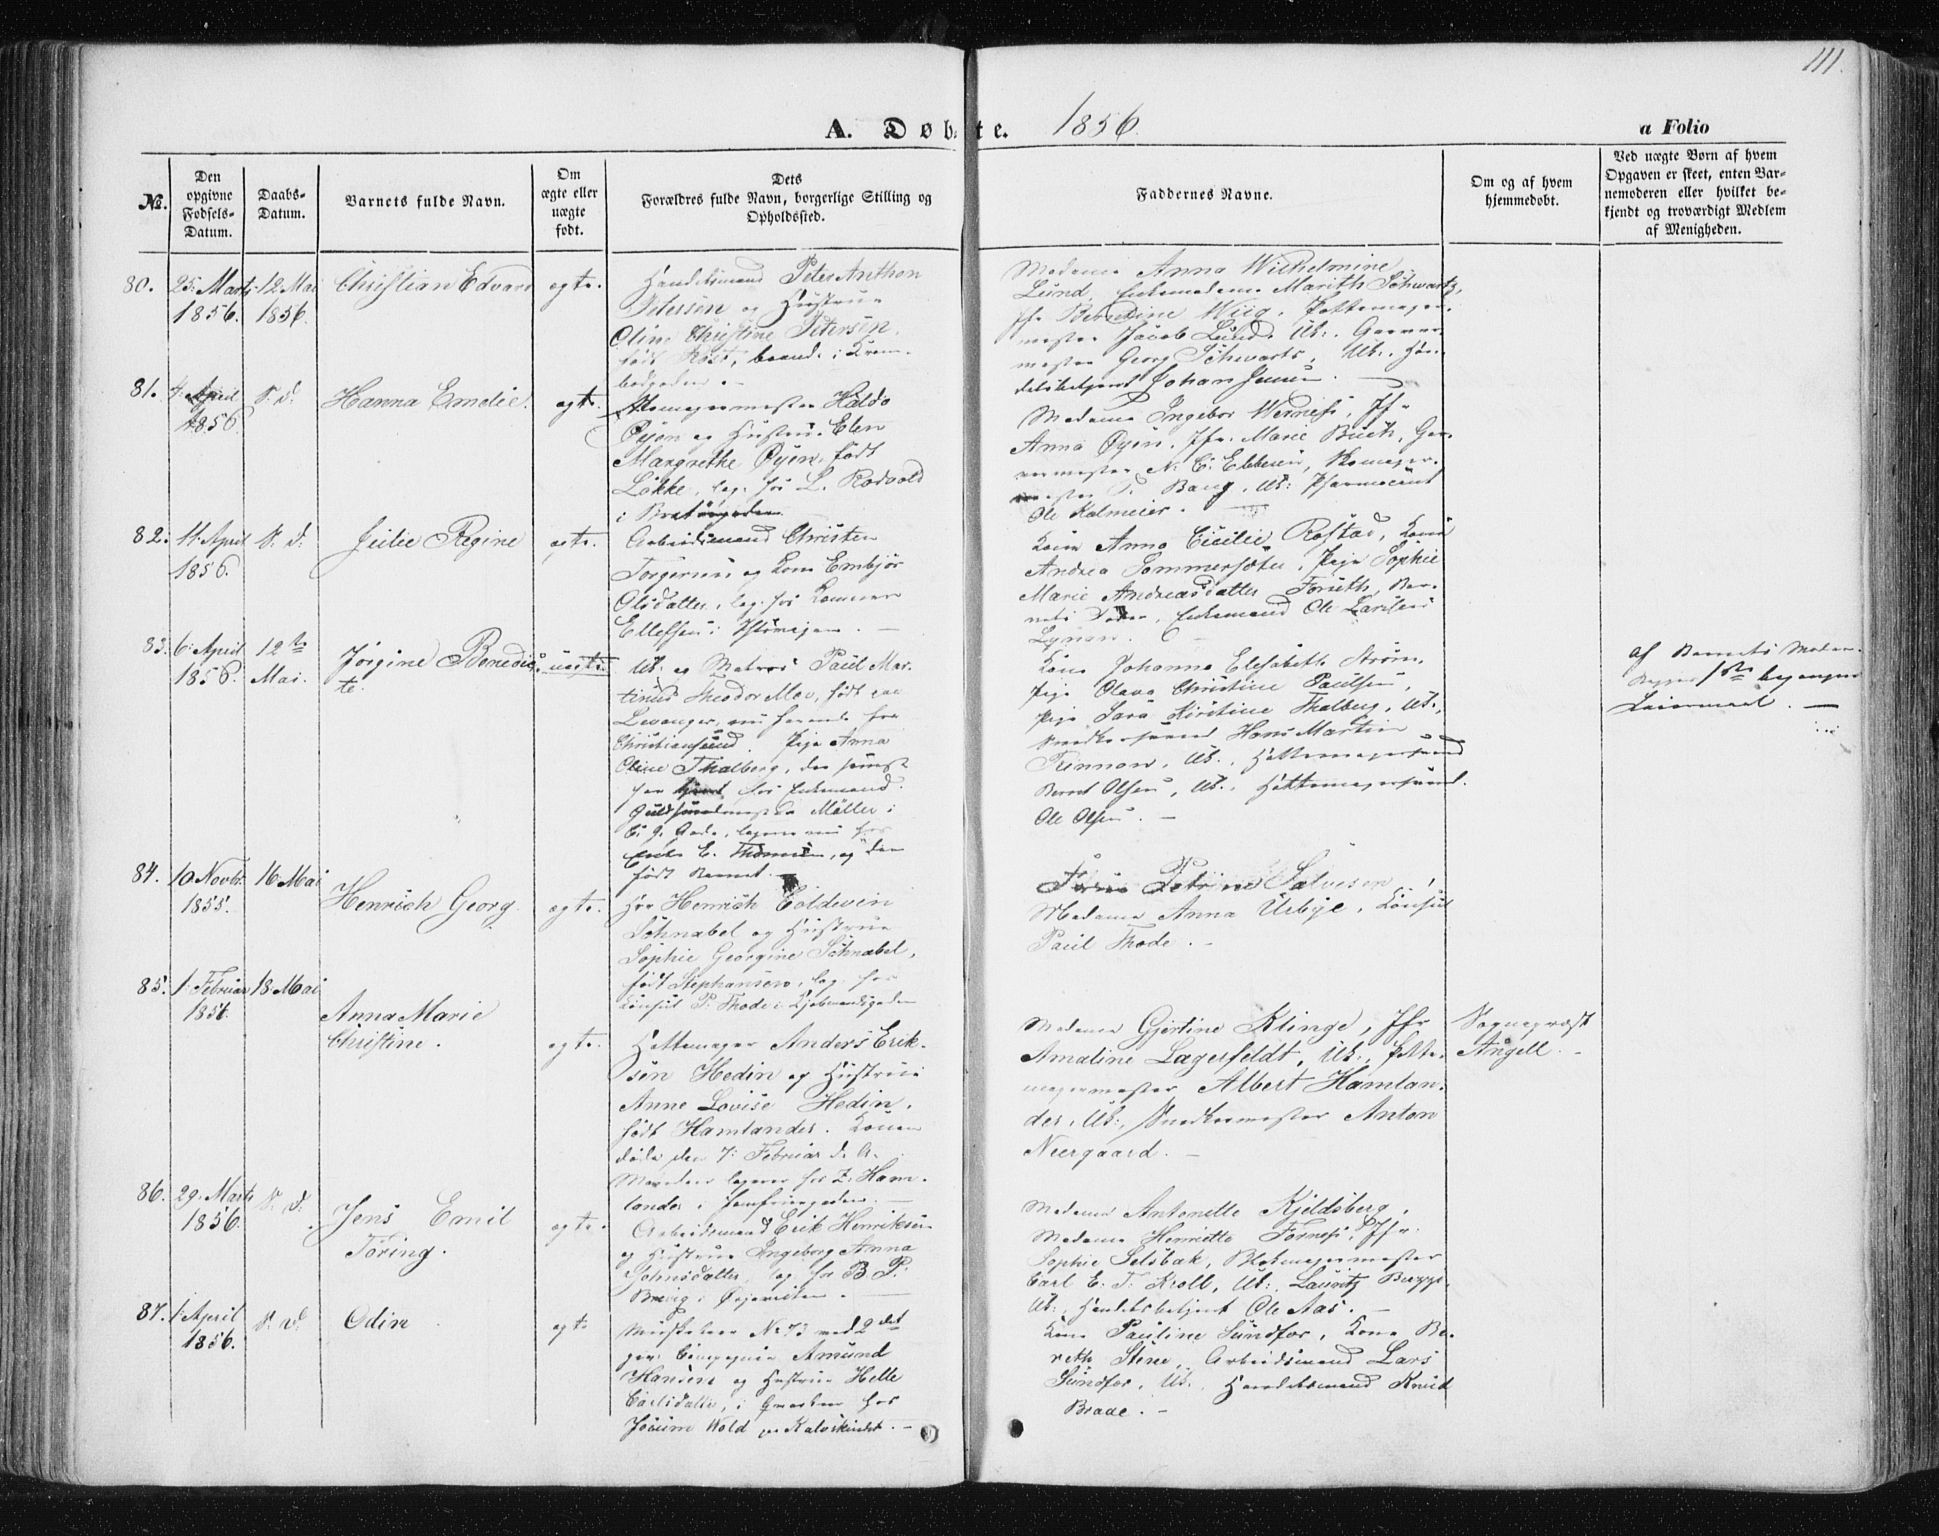 111.
A. Døbte. 1856.
a Folio
No.
Den opgivne Fødsels-Datum.
Daabs-Datum.
Barnets fulde Navn.
Om ægte eller uægte født.
Dets Forældres fulde Navn, borgerlige Stilling og Opholdssted.
Faddernes Navne.
Om og af hvem hjemmedøbt.
Ved uægte Børn af hvem Opgaven er skeet, enten Barnemoderen eller hvilket bekjendt og troværdigt Medlem af Menigheden.
80. 25. Marts 1856. 12 Mai 1856. Christian Edvard ægte.
Handelsmand Peter Anthon
Petersen og Hustrue
Oline Christine Petersen,
født Rost, boende i Kram-
bodgaden –
Madame Anna Wilhelmine
Lund, Enkemadame Marith Schwartz,
Jfr Berndine Wiig, Pottemager-
mester Jacob Lund, Uk. Garver-
mester Georg Schwarts, Uk. Han-
delsbetjent Johan Jensen. –
81. 4. April 1856. S. D. Hanna Emelie. ægte.
Skomagermester Haldo
Øyen og Hustrue Elen
Margrethe Øyen, født
Løkke, log. hos L. Rodvold
i Bratørgaden
Madame Ingebor Werness, Jfr
Anna Øyen, Jfr. Marie Buck, Gar-
vermester N. C. Ebbesen, Skomager-
mester P. Bang, Uk: Pharmaceut
Ole Kalmeier. –
82. 11. April 1856. S. D. Julie Regine ægte.
Arbeidsmand Christen
Torgersen og Kone Embjør
Olsdatter, log. hos
Ellefsen i Ihlevejen. –
Kone Anna Cicilie Rostad, Kone
Andrea Sommersæter, Pige Sophie
Marie Andreasdatter Foruth, Ber-
Enkemand Ole Larsen
Lynan.
83. 6. April 1856. 12te Mai. Jørgine Benedic-
te. uægte.
Uk. og Matros Paul Mar-
tinus Theodor Moe, født paa
Levanger, nu farende fra
Christiansund. Pige Anna
Oline Thalberg, der
har tjent hos Enkemand
Guldsmedmester Møller i
C. J. Gade, logerer nu hos
Enke E. Thomsen, og der
født Barnet. –
Kone Johanna Elisabeth Strøm,
Pige Olava Christine Paulsen,
Pige Sara Kirstine Thalberg, Uk.,
Snedkersvend Hans Martin
Rinnan, Uk., Hattemagersvend
Bernt Olsen, Uk., Hattemagersvend
Ole Olsen. –
af Barnets Moder.
Begges 1ste begangne
Leiermaal. –
84. 10 Novbr. 1855. 16. Mai Henrich Georg. ægte.
Hr Henrich Coldevin
Schnabel og Hustrue
Sophie Georgine Schnabel,
født Stephansen, log. hos
Konsul P. Thode i Kjøbmandsgaden
Petrine Salvesen,
Madame Anna Ursbye, Konsul
Paul Thode. –
85. 1. Februar 1856. 18 Mai Anna Marie
Christine. ægte.
Hattemager Anders Erik-
sen Hedin og Hustrue
Anne Lovise Hedin,
født Hamlander. Konen
døde den 7. Februar d. A.
Manden logerer hos Z. Ham-
lander i Jomfruegaden. –
Madame Gjertine Klinge, Jfr
Amaline Lagerfeldt, Uk., Hatte-
magermester Albert Hamlan-
der, Uk., Snedkermester Anton
Neergaard. –
Sognepræst
Angell. –
86. 29. Marts 1856. S. D. Jens Emil
Toring. ægte.
Arbeidsmand Erik Henriksen
og Hustrue Ingeborg Anna
Johnsdatter, log. hos B. P.
Brevig i Øvjeveiten. –
Madame Antonette Kjeldsberg,
Madame Henriette Forness, Jfr.
Sophie Selsbak, Blokmagermester
Carl E. T. Kroll, Uk. Lauritz Brygge
Uk., Handelsbetjent Ole Aas. –
87. 1. April 1856. S. D. Odin ægte
Musketeer No 73 ved 2det
gev. Compagnie Amund
Hansen og Hustrue Helle
Carlsdatter, i Qvarteer hos
Jocum Wold paa Kalvskindet. –
Kone Pauline Sundfor, Kone Be-
reth Stene, Arbeidsmand Lars
Sundfor, Uk. Handelsmand Knud
Braae. –